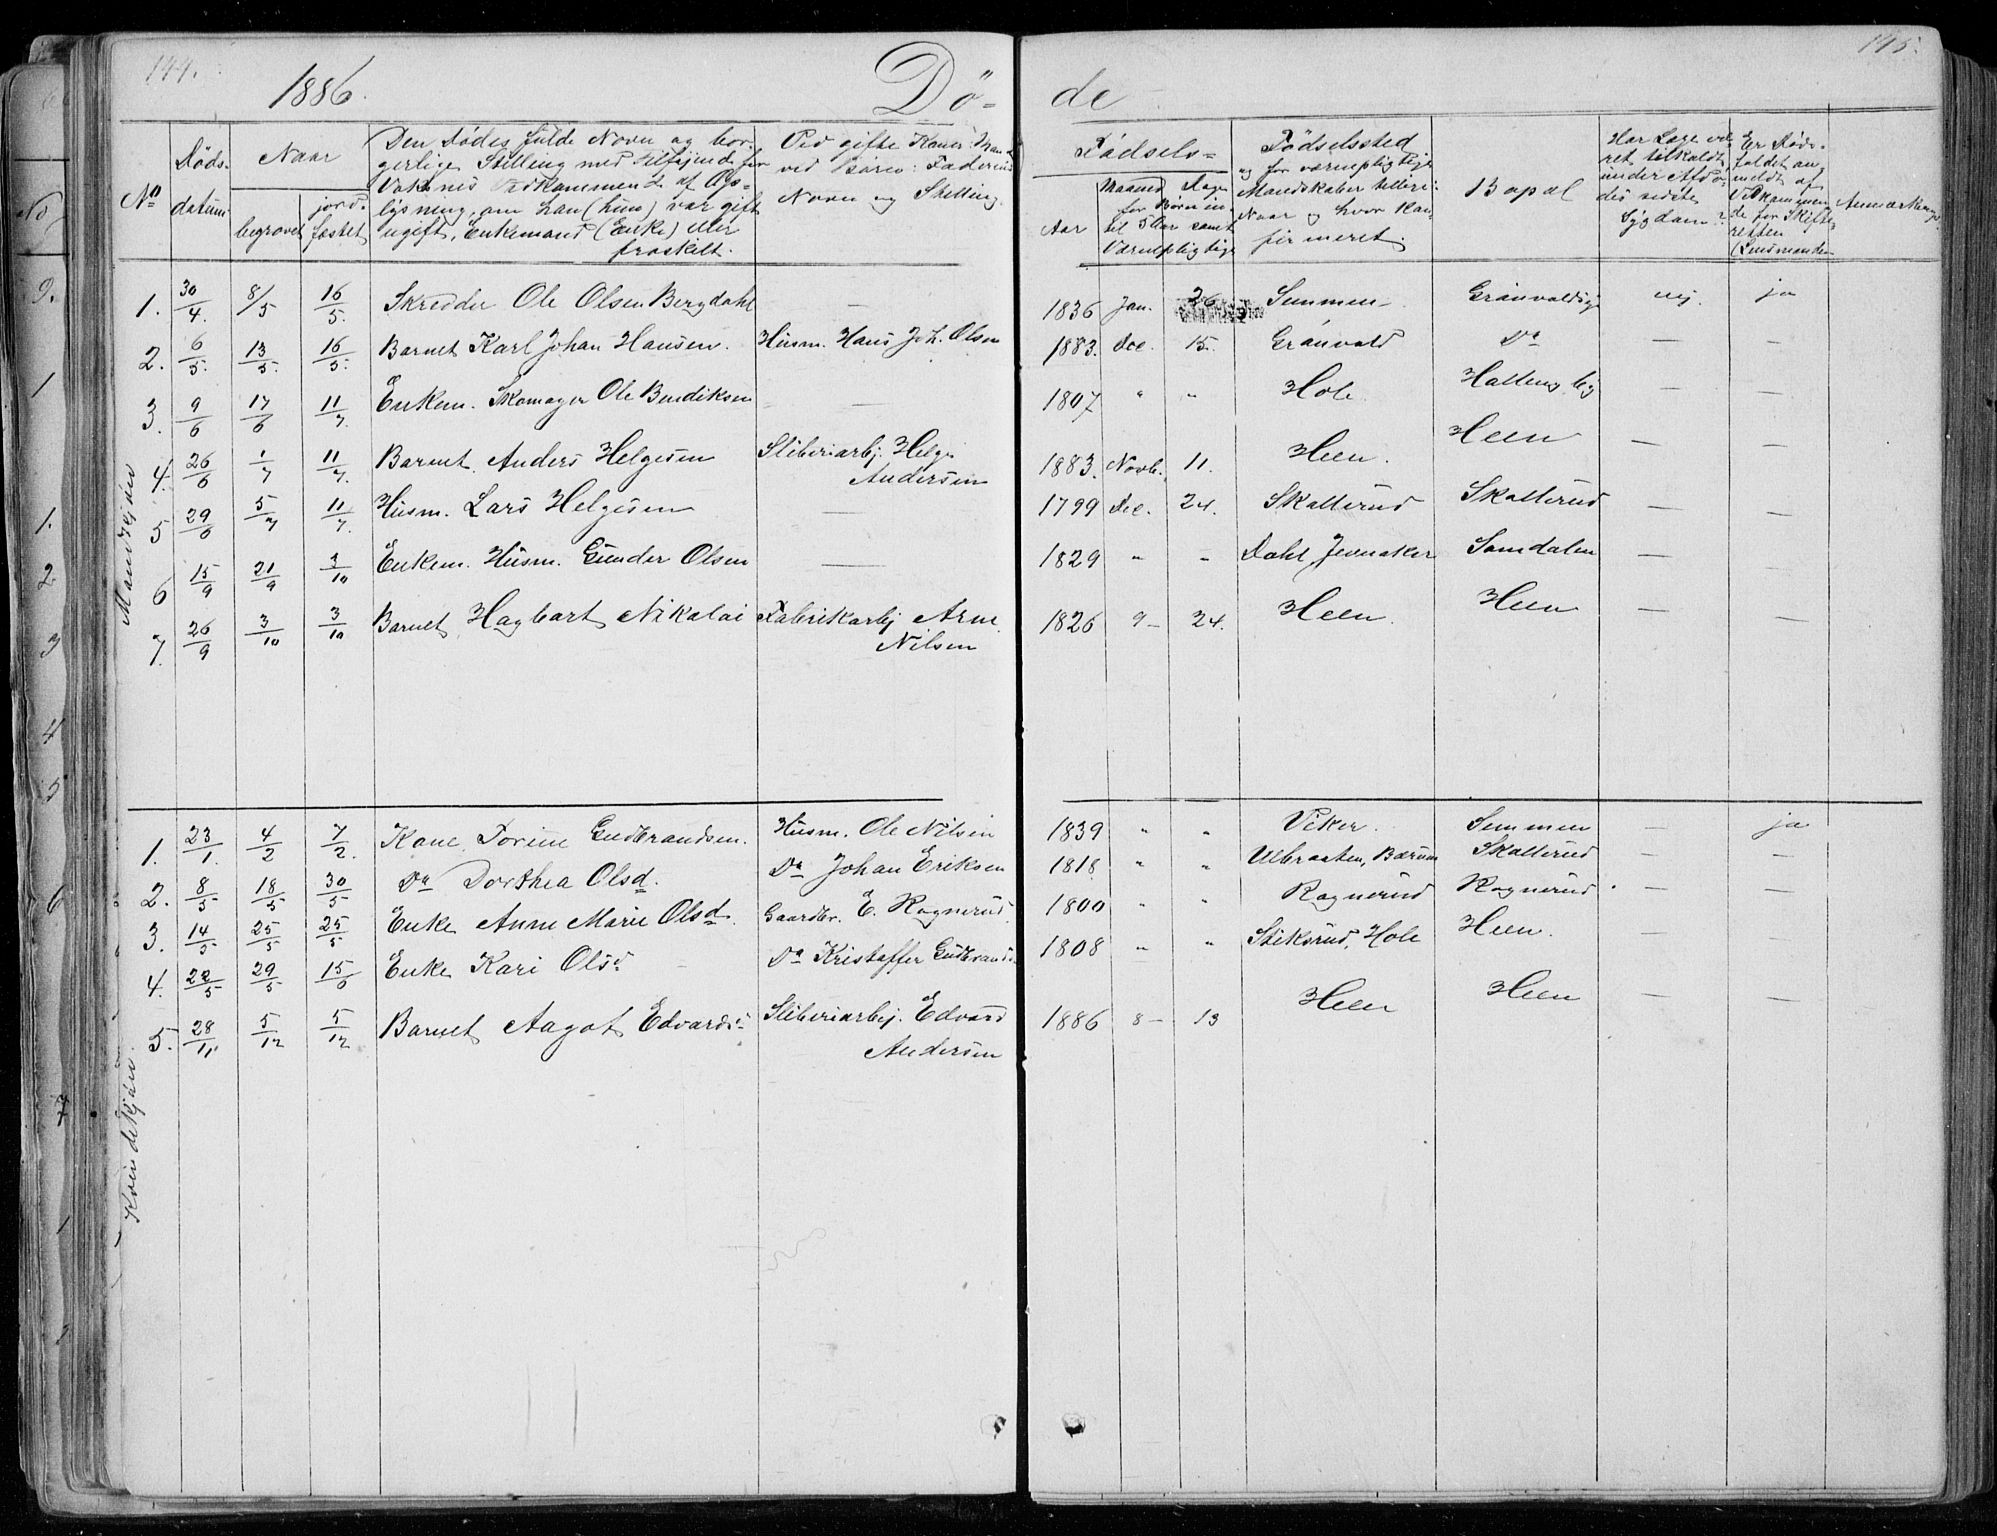 144.
1886.
Dö-
de
145.
No
Dödsdatum
Naar
begravet
jordfæstet
Den Dödes fulde Navn og borgerlige Stilling med Tilföjende for Voksnes Vedkommende af Oplysning, om han (hun) var gift, ugift, Enkemand (Enke) eller fraskilt.
Ved gifte Koner: Mandens, ved Börn: Faderens Navn og Stilling.
Födsels-
Aar
Maaned Dag
for Börn indtil 5 Aar samt Værnepligtige
Födselssted
og for værnepligtige Mandskaber tillige: Naar og hvor konfirmeret.
Bopæl
Har Læge været tilkaldt under Afdödes sidste Sygdom?
Er Dödsfaldet anmeldt af Vedkommende for Skifteretten (Lensmanden
Anmærkninger
Mandkjön
1. 30/4. 8/5 16/5. Skrædder Ole Olsen Bergdahl — 1836 Jan. 26 Semmen Grönvoldsg. nej. ja
2. 6/5. 13/5. 16/5. Barnet Karl Johan Hansen. Husm. Hans Joh. Olsen 1883. Dec. 15. Grönvold Do — —
3. 9/6 17/6 11/7. Enkem. Skomager Ole Bendiksen — 1807 " " Hole. — —
4. 26/6 1/7 11/7. Barnet Anders Helgesen Sliberiarbj. Helge Andersen 1883. Novb. 11. Heen. Heen — —
5 29/6 5/7 11/7. Husm. Lars Helgesen — 1799 Dec. 24. Skollerud Skollerud — —
6 15/9 21/9 3/10 Enkem. Husm. Gunder Olsen — 1829 " " Dahl, Jevnaker Samdalen — —
7. 26/9 3/10 3/10 Barnet Hagbart Nikolai Fabrikarbj Arne Nilsen 1826 9 — 24. Heen. Heen — —
Kvindekjön.
1. 23/1. 4/2 7/2. Kone Torine Gudbrandsen. Husm. Ole Nilsen 1839 " " Viker. Semmen — ja
2. 8/5 18/5 30/5 Do Dorthea Olsd. Do Johan Eriksen 1818 " " Ulbraaten, Bærum Skollerud — —
3. 14/5 25/5 25/5 Enke Anne Marie Olsd. Gaardbr. E. Rognerud 1800 " " Rognerud Rognerud. — —
4. 22/5 29/5 15/6 Enke Kari Olsd — Do Kristoffer Gudbrands. 1808 " " Stiksrud, Hole Heen. — —
5. 28/11 5/12 5/12 Barnet Aagot Edvards. Sliberiarbj. Edvard Andersen 1886 8 — 13 Heen Heen — —